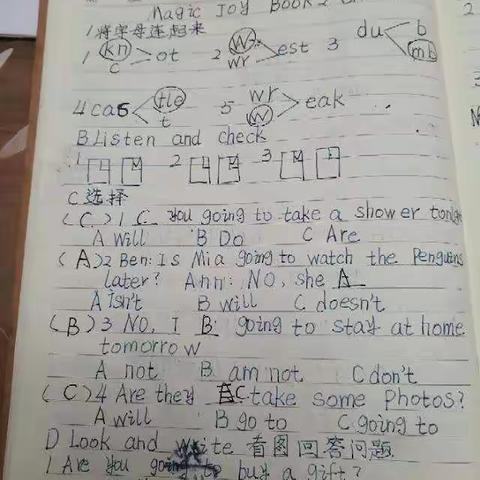 Magic Joy Book 2
1将字母连起来
1 kn c ot 2 W wr est 3 du b mb
4 cas tle t 5 wr W eak
B Listen and check
1 2 3
C 选择
(C) 1 C you going to take a shower tonight
A Will B Do C Are
(A) 2 Ben: Is Mia going to watch the Penguins
later? Ann: NO, she A
A isn't B will C doesn't
(B) 3 NO, I B going to stay at home
tomorrow
A not B am not C don't
(C) 4 Are they C take some Photos?
A will B go to C going to
D Look and write 看图回答问题
1 Are you going to buy a gift?